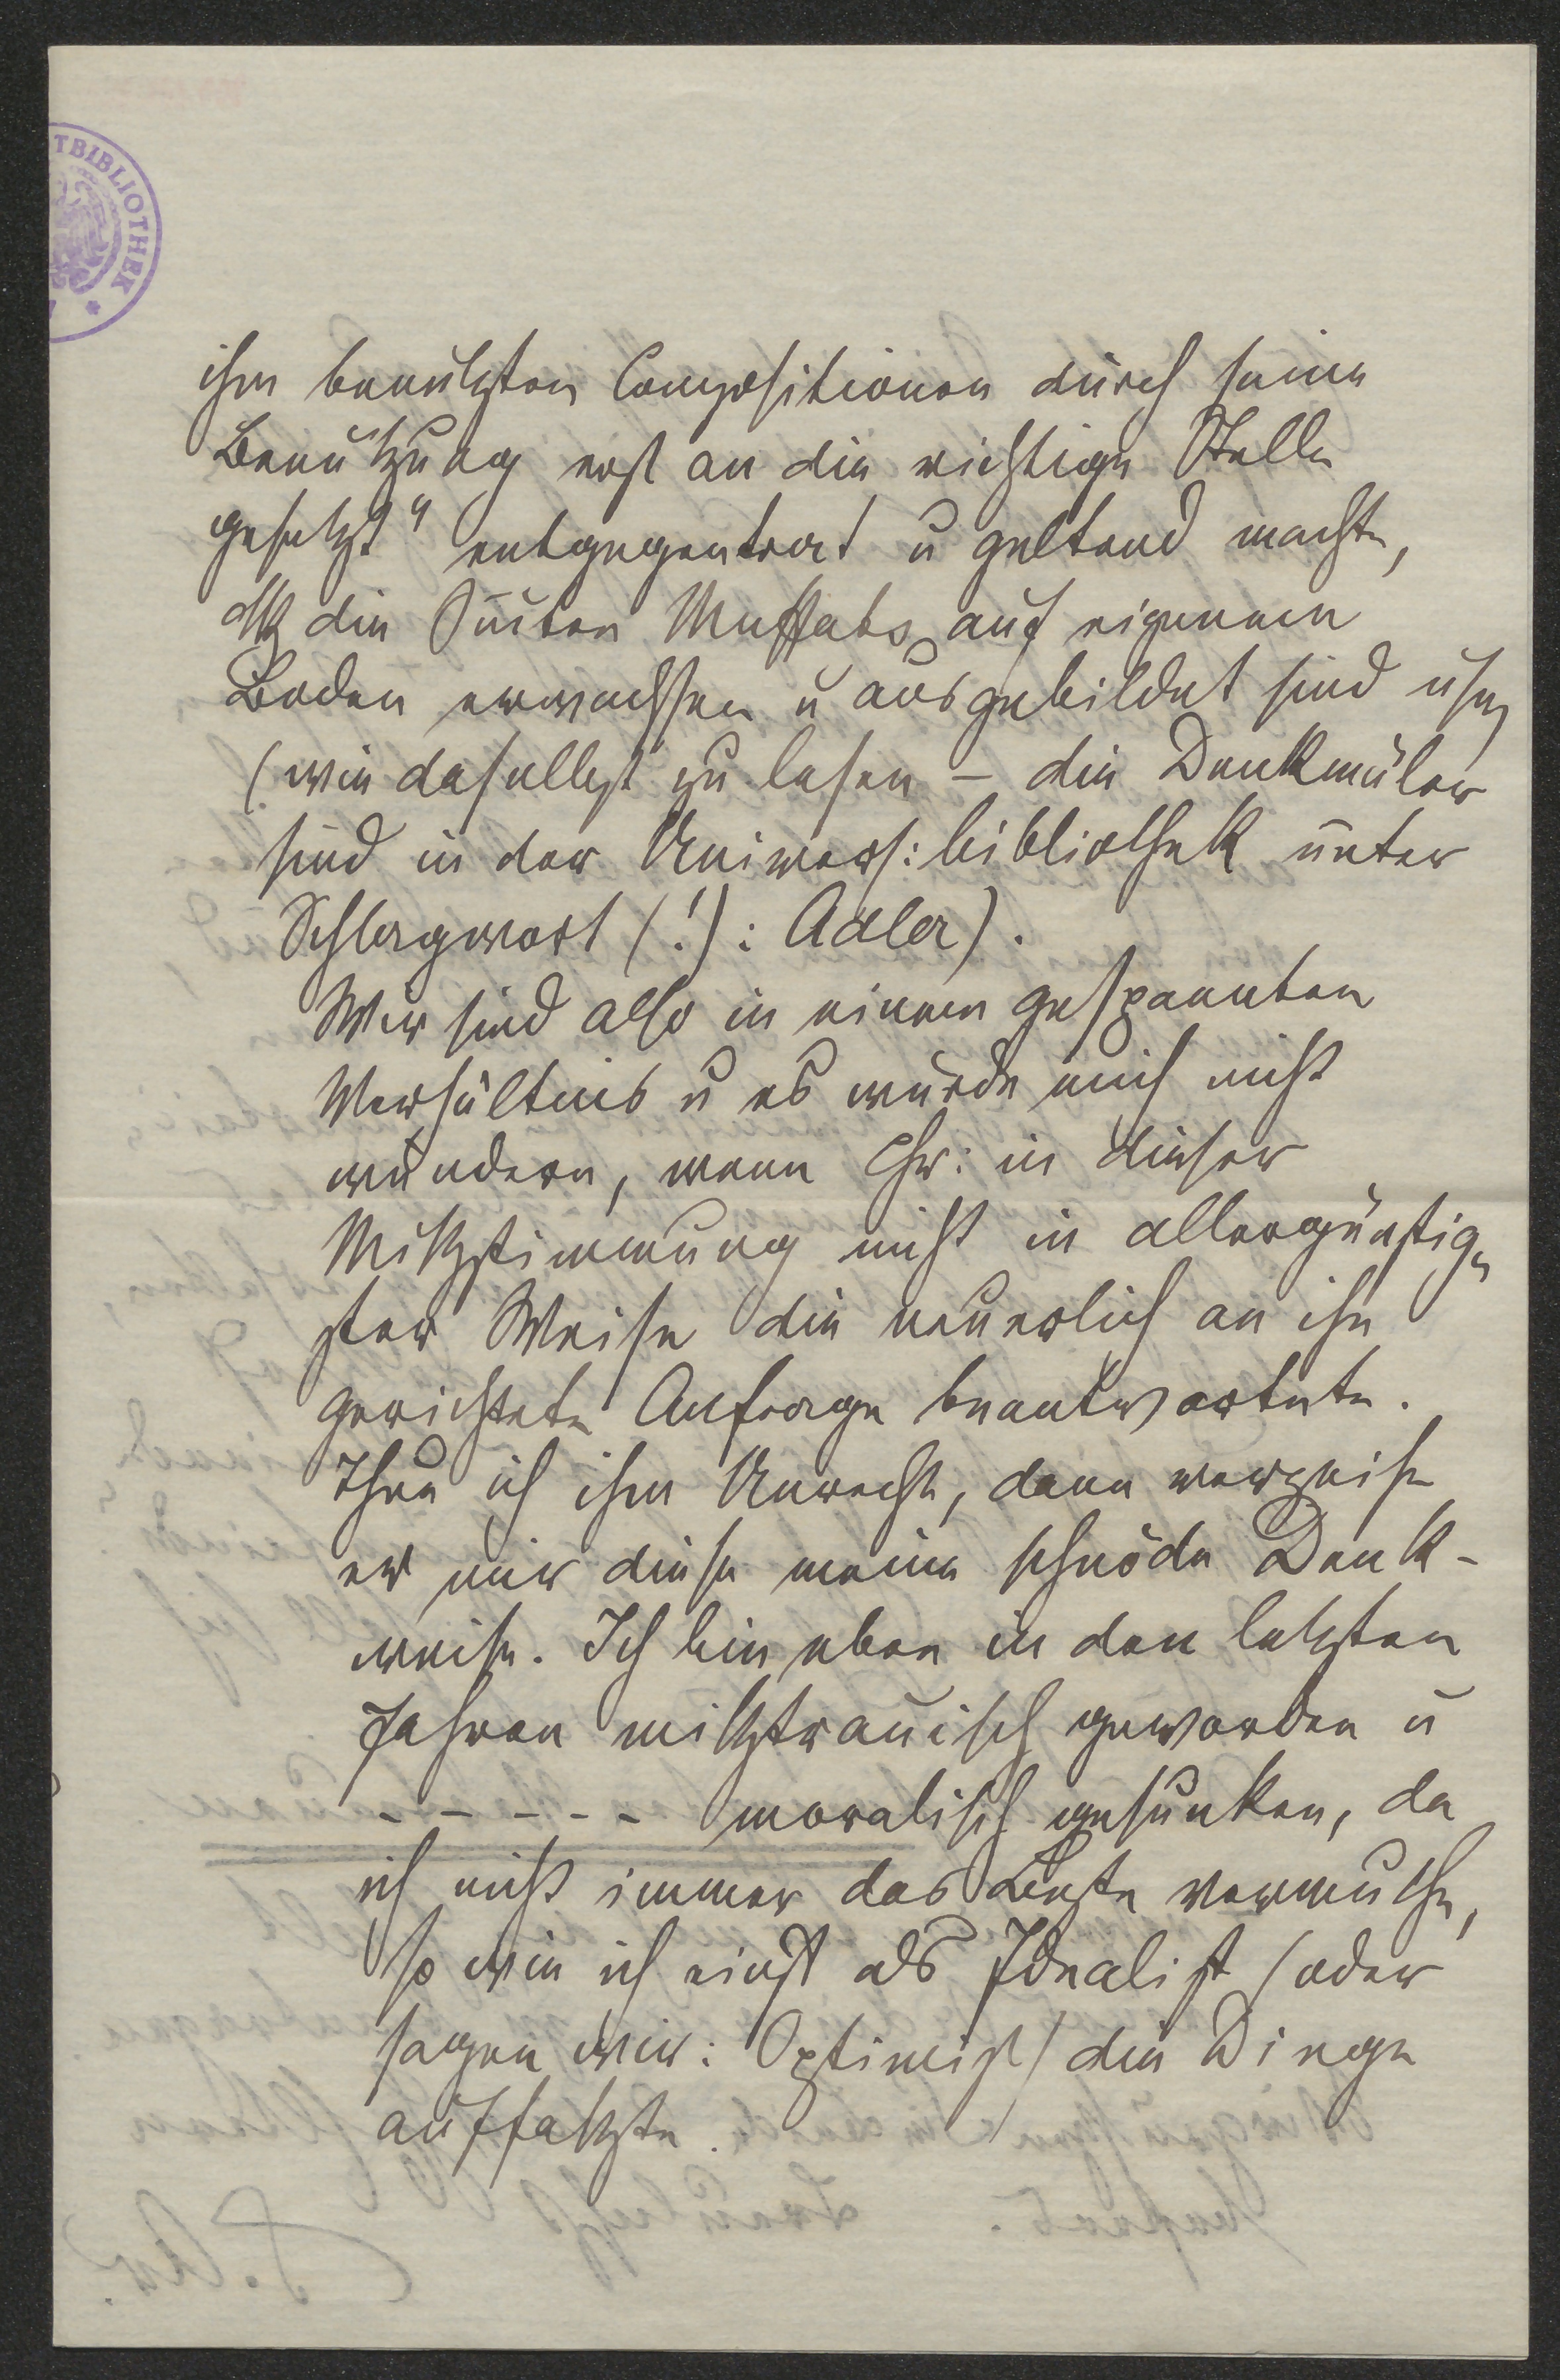 TBIBLIOTHEK
ihm benützten Compositionen durch seine
Benützung erst an die richtige Stelle
gesetzt" entgegentrat u geltend machte,
dß die Suiten Muffats auf eigenem
Boden erwachsen u ausgebildet sind usw
(wie daselbst zu lesen – die Denkmäler
sind in der Univers: bibliothek unter
Schlagwort (!): Adler).
Wir sind also in einem gespannten
Verhältnis u es würde mich nicht
wundern, wenn Chr: in dieser
Mißstimmung nicht in allergünstig-
ster Weise die neuerlich an ihn
gerichtete Anfrage beantwortete.
Thue ich ihm Unrecht, dann verzeihe
er mir diese meine schnöde Denk-
weise. Ich bin eben in den letzten
Jahren mißtrauisch geworden u
- - - - - moralisch gesunken, da
ich nicht immer das Beste vermuthe,
so wie ich einst als Idealist (oder
sagen wir: Optimist) die Dinge
auffaßte.